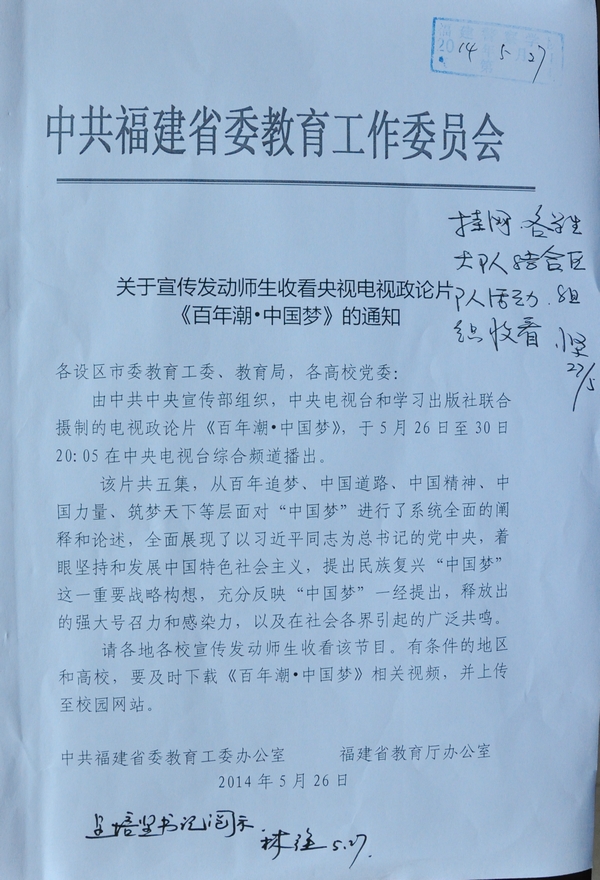 2014 5 27
中共福建省委教育工作委员会
挂网.各学生
大队结合区
队活动.组
织收看
27/5
关于宣传发动师生收看央视电视政论片
《百年潮·中国梦》的通知
各设区市委教育工委、教育局，各高校党委：
由中共中央宣传部组织，中央电视台和学习出版社联合
摄制的电视政论片《百年潮·中国梦》，于5月26日至30日
20:05在中央电视台综合频道播出。
该片共五集，从百年追梦、中国道路、中国精神、中
国力量、筑梦天下等层面对“中国梦”进行了系统全面的阐
释和论述，全面展现了以习近平同志为总书记的党中央，着
眼坚持和发展中国特色社会主义，提出民族复兴“中国梦”
这一重要战略构想，充分反映“中国梦”一经提出，释放出
的强大号召力和感染力，以及在社会各界引起的广泛共鸣。
请各地各校宣传发动师生收看该节目。有条件的地区
和高校，要及时下载《百年潮·中国梦》相关视频，并上传
至校园网站。
中共福建省委教育工委办公室 福建省教育厅办公室
2014年5月26日
呈培坚书记阅示
5.27.